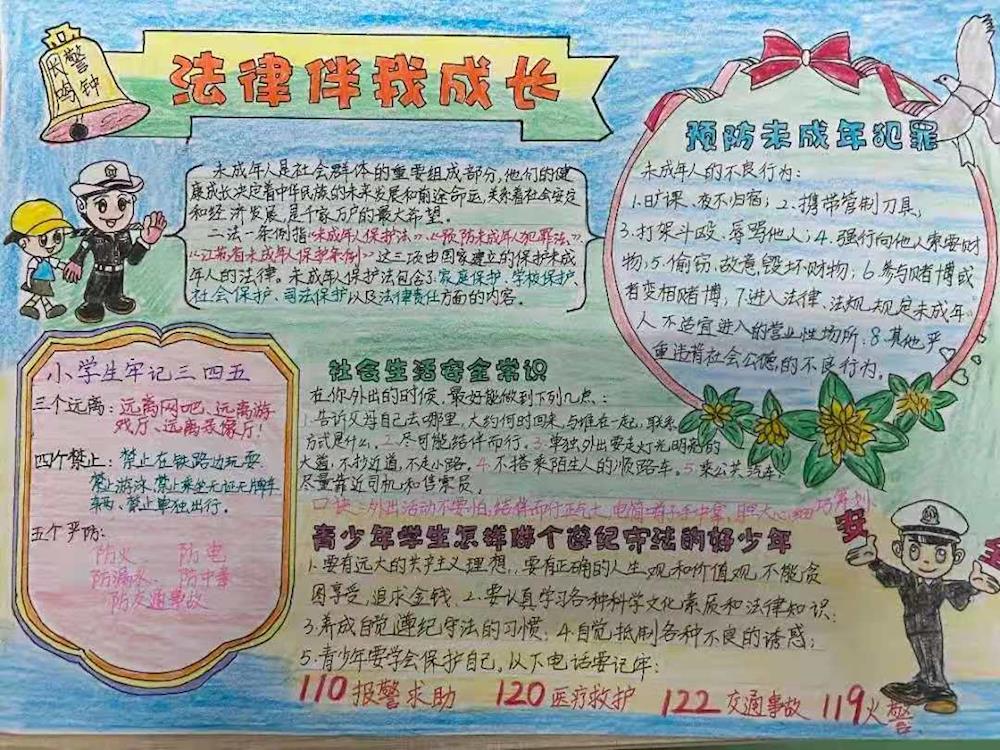 警钟
长鸣
法律伴我成长
未成年人是社会群体的重要组成部分,他们的健
康成长决定着中华民族的未来发展和前途命运,关系着社会安定
和经济发展,是千家万户的最大希望。
二法一条例指《未成年人保护法》、《预防未成年犯罪法》、
《江苏省未成年人保护条例》这三项由国家建立的保护未成
年人的法律。未成年人保护法包含了家庭保护、学校保护、
社会保护、司法保护以及法律责任方面的内容。
预防未成年犯罪
未成年人的不良行为:
1.旷课、夜不归宿;2、携带管制刀具;
3.打架斗殴、辱骂他人;4.强行向他人索要财
物;5.偷窃、故意毁坏财物;6.参与赌博或
者变相赌博,7.进入法律、法规规定未成年
人不适宜进入的营业性场所;8.其他严
重违背社会公德的不良行为。
小学生牢记三四五
三个远离:远离网吧、远离游
戏厅、远离录像厅!
四个禁止:禁止在铁路边玩耍
禁止游泳、禁止乘坐无证无牌车
辆、禁止单独出行。
五个严防:
防火 防电
防溺水、防中毒
防交通事故
社会生活安全常识
在你外出的时候,最好能做到下列几点:
1.告诉父母自己去哪里,大约何时回来,与谁在一起,联系
方式是什么,2.尽可能结伴而行。3.单独外出要走灯光明亮的
大道,不抄近道,不走小路。4.不搭乘陌生人的顺路车。5.乘公共汽车,
尽量靠近司机和售票员。
口诀:外出活动不要怕,结伴而行正气大,电筒哨子手中拿,胆大心细巧筹划
青少年学生怎样做个遵纪守法的好少年
1.要有远大的共产主义理想,要有正确的人生观和价值观,不能贪
图享受,追求金钱、2.要认真学习各种科学文化素质和法律知识;
3.养成自觉遵纪守法的习惯;4.自觉抵制各种不良的诱惑;
5.青少年要学会保护自己,以下电话要记牢:
110报警求助 120医疗救护 122交通事故 119火警
安
全